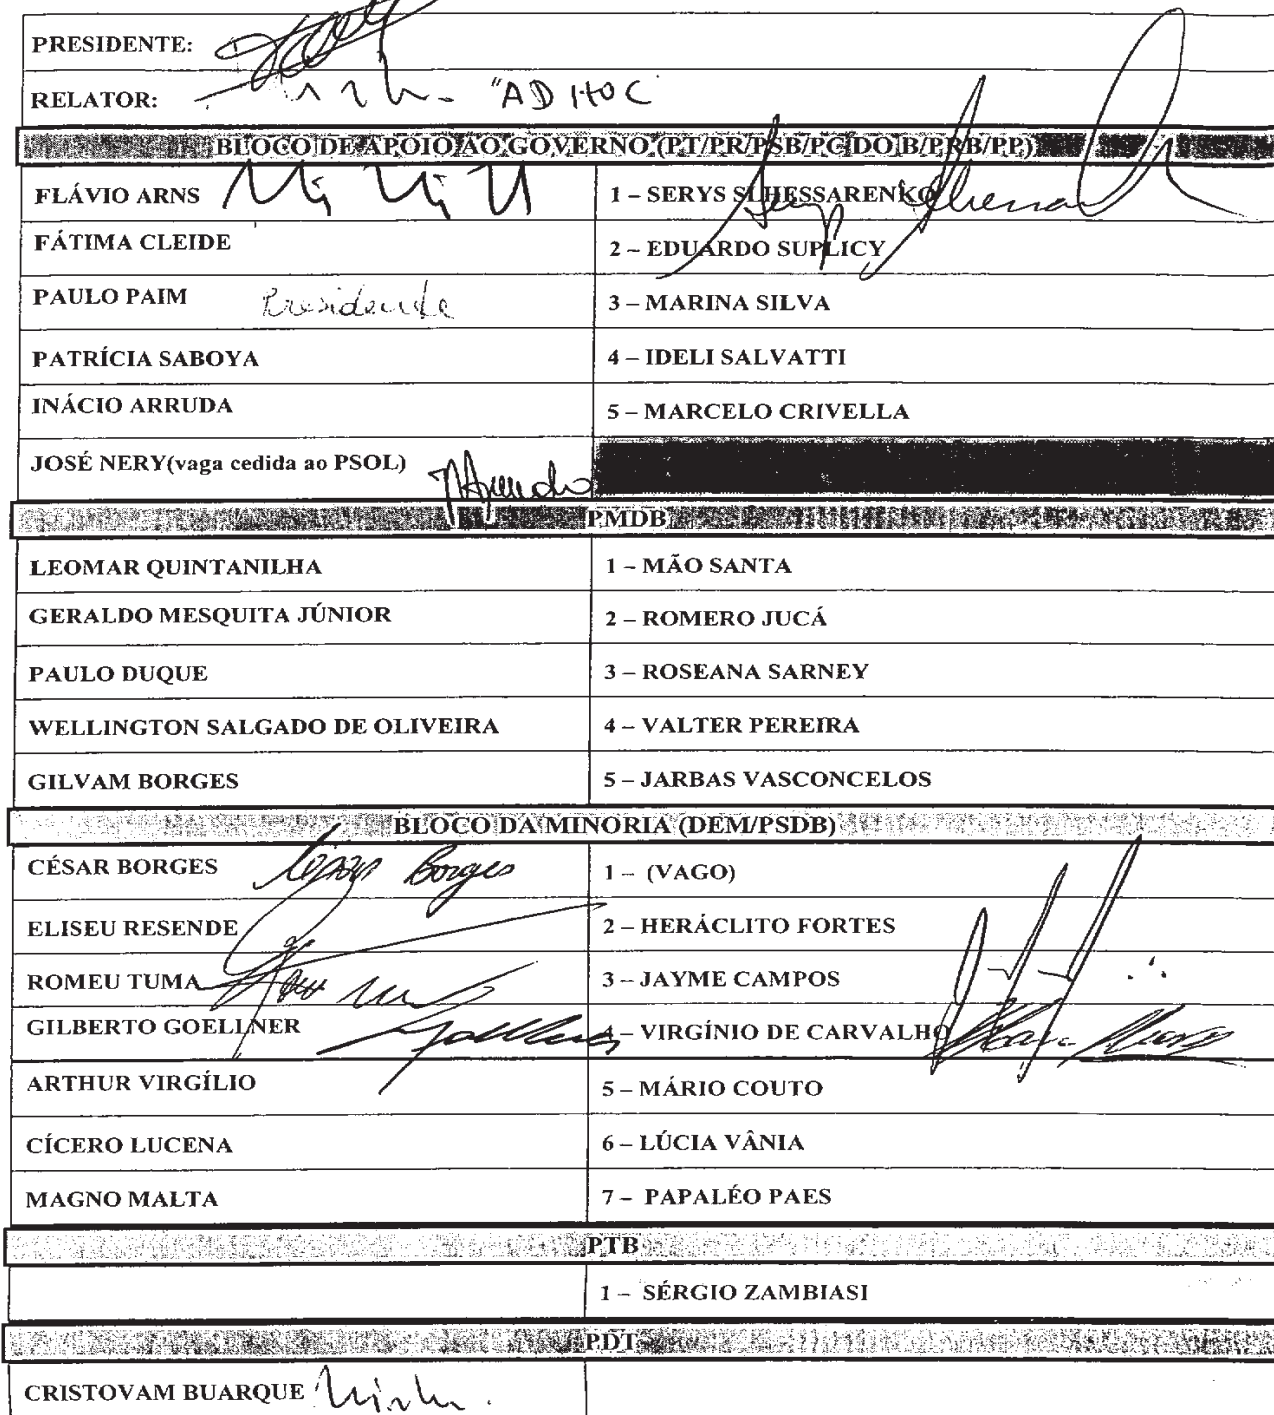 PRESIDENTE:
RELATOR: "AD HOC"
BLOCO DE APOIO AO GOVERNO (PT/PR/PSB/PC DO B/PRB/PP)
FLÁVIO ARNS 1 – SERYS SLHESSARENKO
FÁTIMA CLEIDE 2 – EDUARDO SUPLICY
PAULO PAIM Presidente 3 – MARINA SILVA
PATRÍCIA SABOYA 4 – IDELI SALVATTI
INÁCIO ARRUDA 5 – MARCELO CRIVELLA
JOSÉ NERY(vaga cedida ao PSOL)
PMDB
LEOMAR QUINTANILHA 1 – MÃO SANTA
GERALDO MESQUITA JÚNIOR 2 – ROMERO JUCÁ
PAULO DUQUE 3 – ROSEANA SARNEY
WELLINGTON SALGADO DE OLIVEIRA 4 – VALTER PEREIRA
GILVAM BORGES 5 – JARBAS VASCONCELOS
BLOCO DA MINORIA (DEM/PSDB)
CÉSAR BORGES César Borges 1 – (VAGO)
ELISEU RESENDE 2 – HERÁCLITO FORTES
ROMEU TUMA 3 – JAYME CAMPOS
GILBERTO GOELLNER 4 – VIRGÍNIO DE CARVALHO
ARTHUR VIRGÍLIO 5 – MÁRIO COUTO
CÍCERO LUCENA 6 – LÚCIA VÂNIA
MAGNO MALTA 7 – PAPALÉO PAES
PTB
1 – SÉRGIO ZAMBIASI
PDT
CRISTOVAM BUARQUE